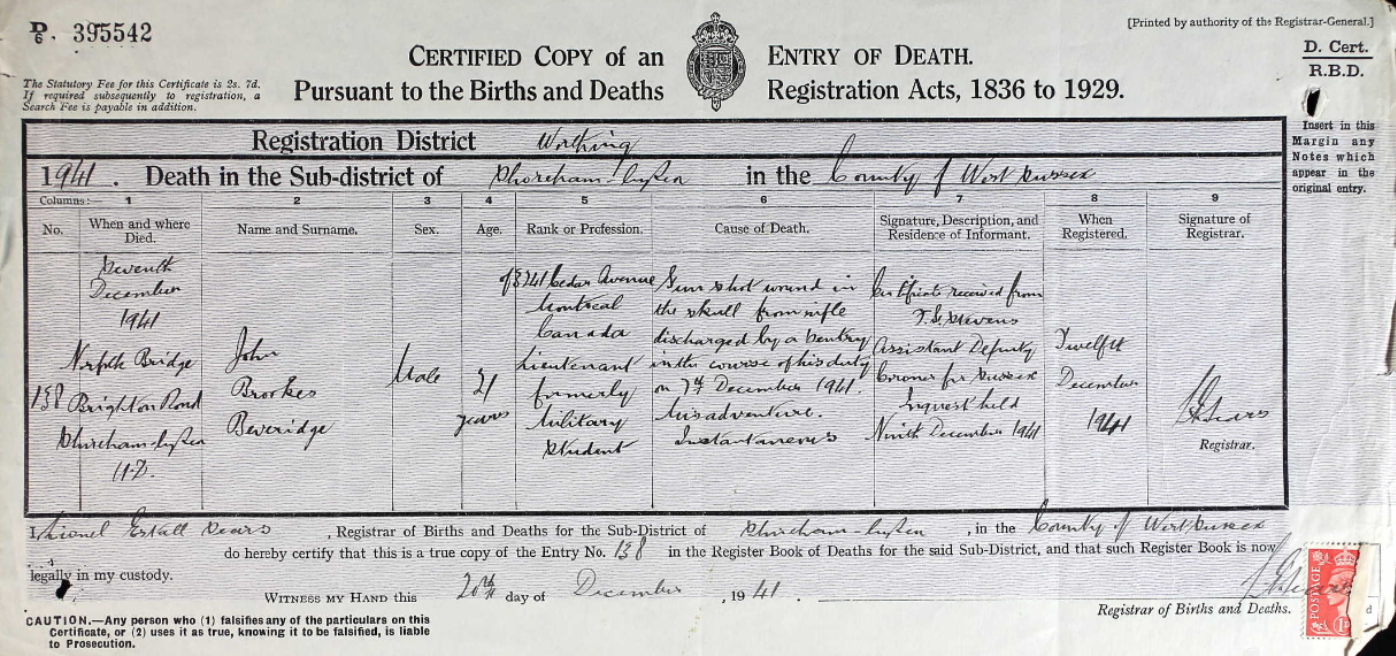 D/6. 395542
[Printed by authority of the Registrar-General.]
CERTIFIED COPY of an ENTRY OF DEATH.
Pursuant to the Births and Deaths Registration Acts, 1836 to 1929.
D. Cert.
R.B.D.
The Statutory Fee for this Certificate is 2s. 7d.
If required subsequently to registration, a
Search Fee is payable in addition.
Insert in this
Margin any
Notes which
appear in the
original entry.
Registration District Worthing
1941. Death in the Sub-district of Shoreham-by-Sea in the County of West Sussex
Columns:— 1 2 3 4 5 6 7 8 9
No.
When and where
Died.
Name and Surname.
Sex.
Age.
Rank or Profession.
Cause of Death.
Signature, Description, and
Residence of Informant.
When
Registered.
Signature of
Registrar.
138
Seventh
December
1941
Norfolk Bridge
Brighton Road
Shoreham-by-Sea
U.D.
John
Brookes
Beveridge
Male
21
years
of 8241 Cedar Avenue
Montreal
Canada
Lieutenant
formerly
Military
Student
Gun shot wound in
the skull from rifle
discharged by a Sentry
in the course of his duty
on 7th December 1941.
Misadventure.
Instantaneous
Certificate received from
Stevens
Assistant Deputy
Coroner for Sussex
Inquest held
Ninth December 1941
Twelfth
December
1941
Sears
Registrar.
I, Lionel Sears, Registrar of Births and Deaths for the Sub-District of Shoreham-by-Sea, in the County of West Sussex
do hereby certify that this is a true copy of the Entry No. 138 in the Register Book of Deaths for the said Sub-District, and that such Register Book is now
legally in my custody.
WITNESS MY HAND this 20th day of December, 1941.
Registrar of Births and Deaths.
CAUTION.—Any person who (1) falsifies any of the particulars on this
Certificate, or (2) uses it as true, knowing it to be falsified, is liable
to Prosecution.
POSTAGE
1D